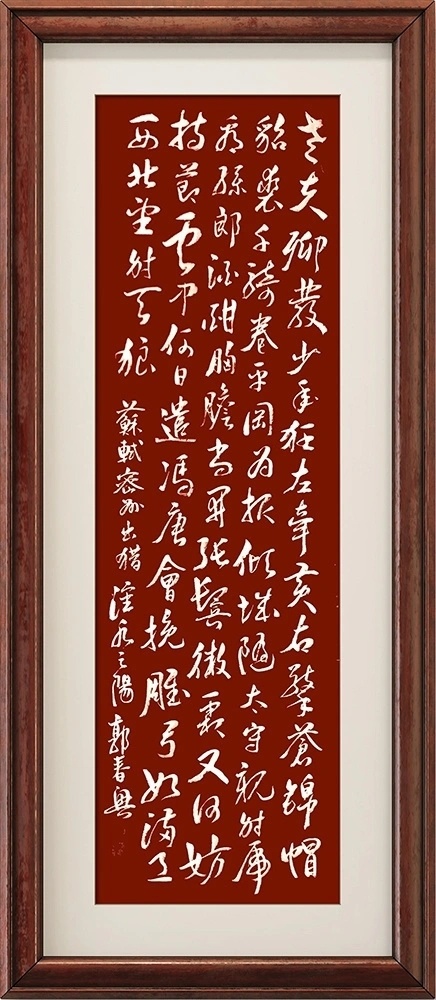 老夫聊發少年狂左牽黃右擎蒼錦帽
貂裘千騎卷平岡為報傾城隨太守親射虎
看孫郎酒酣胸膽尚開張鬢微霜又何妨
持節雲中何日遣馮唐會挽雕弓如滿月
西北望射天狼 蘇軾密州出猎 水之陽 郭春